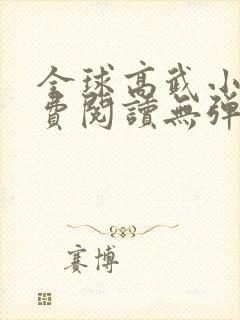 全球高武小
費閱讀無彈
賽博